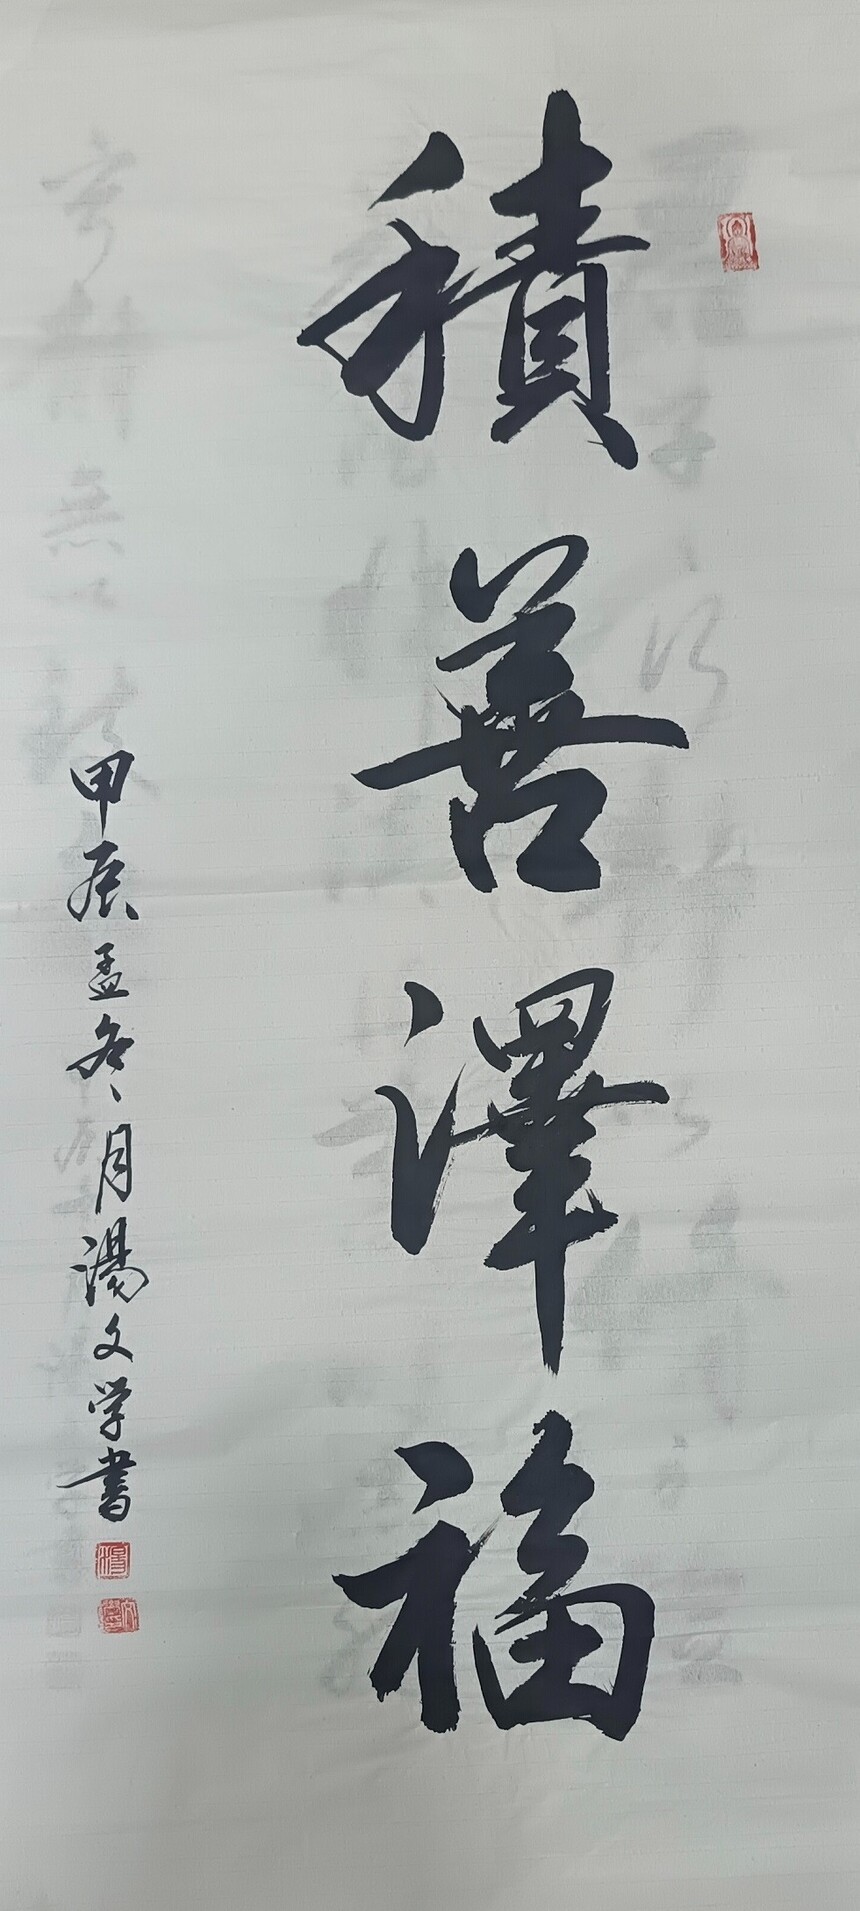 積善澤福
甲辰孟冬月湯文学書